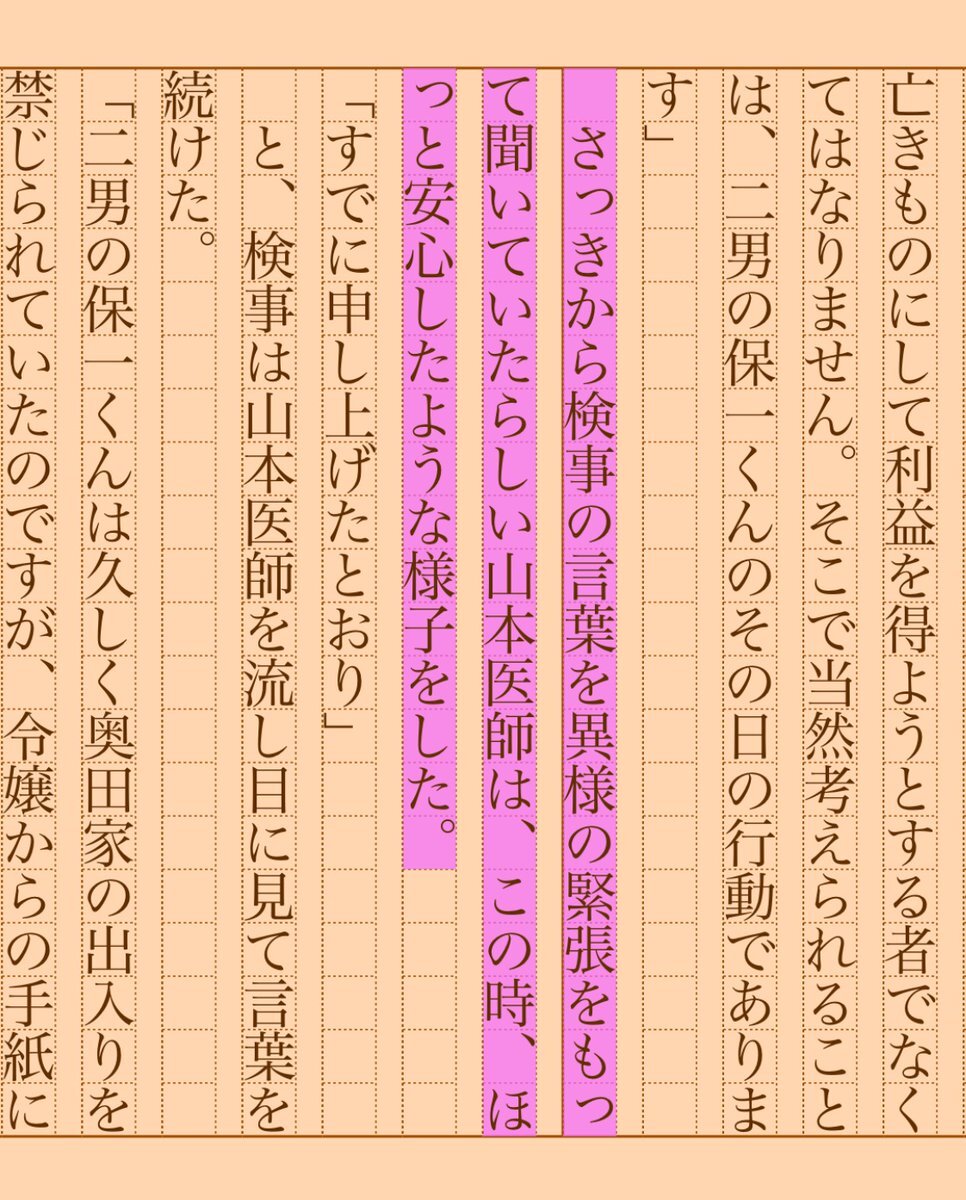 亡きものにして利益を得ようとする者でなく
てはなりません。そこで当然考えられること
は、二男の保一くんのその日の行動でありま
す」
　さっきから検事の言葉を異様の緊張をもっ
て聞いていたらしい山本医師は、この時、ほ
っと安心したような様子をした。
「すでに申し上げたとおり」
　と、検事は山本医師を流し目に見て言葉を
続けた。
「二男の保一くんは久しく奥田家の出入りを
禁じられていたのですが、令嬢からの手紙に